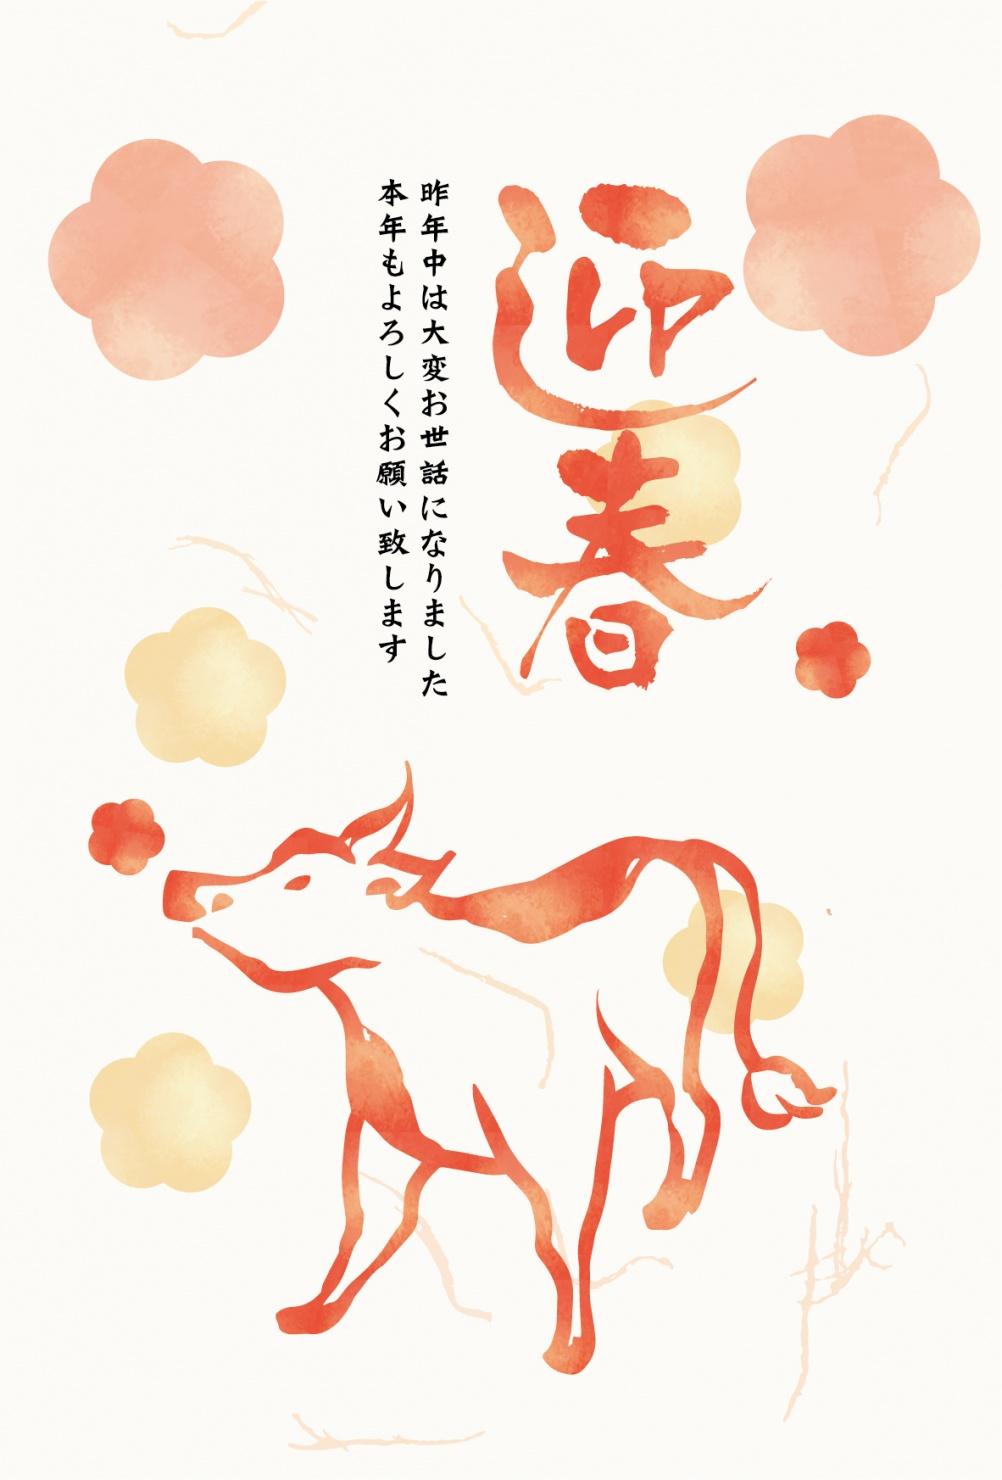 迎春
昨年中は大変お世話になりました
本年もよろしくお願い致します